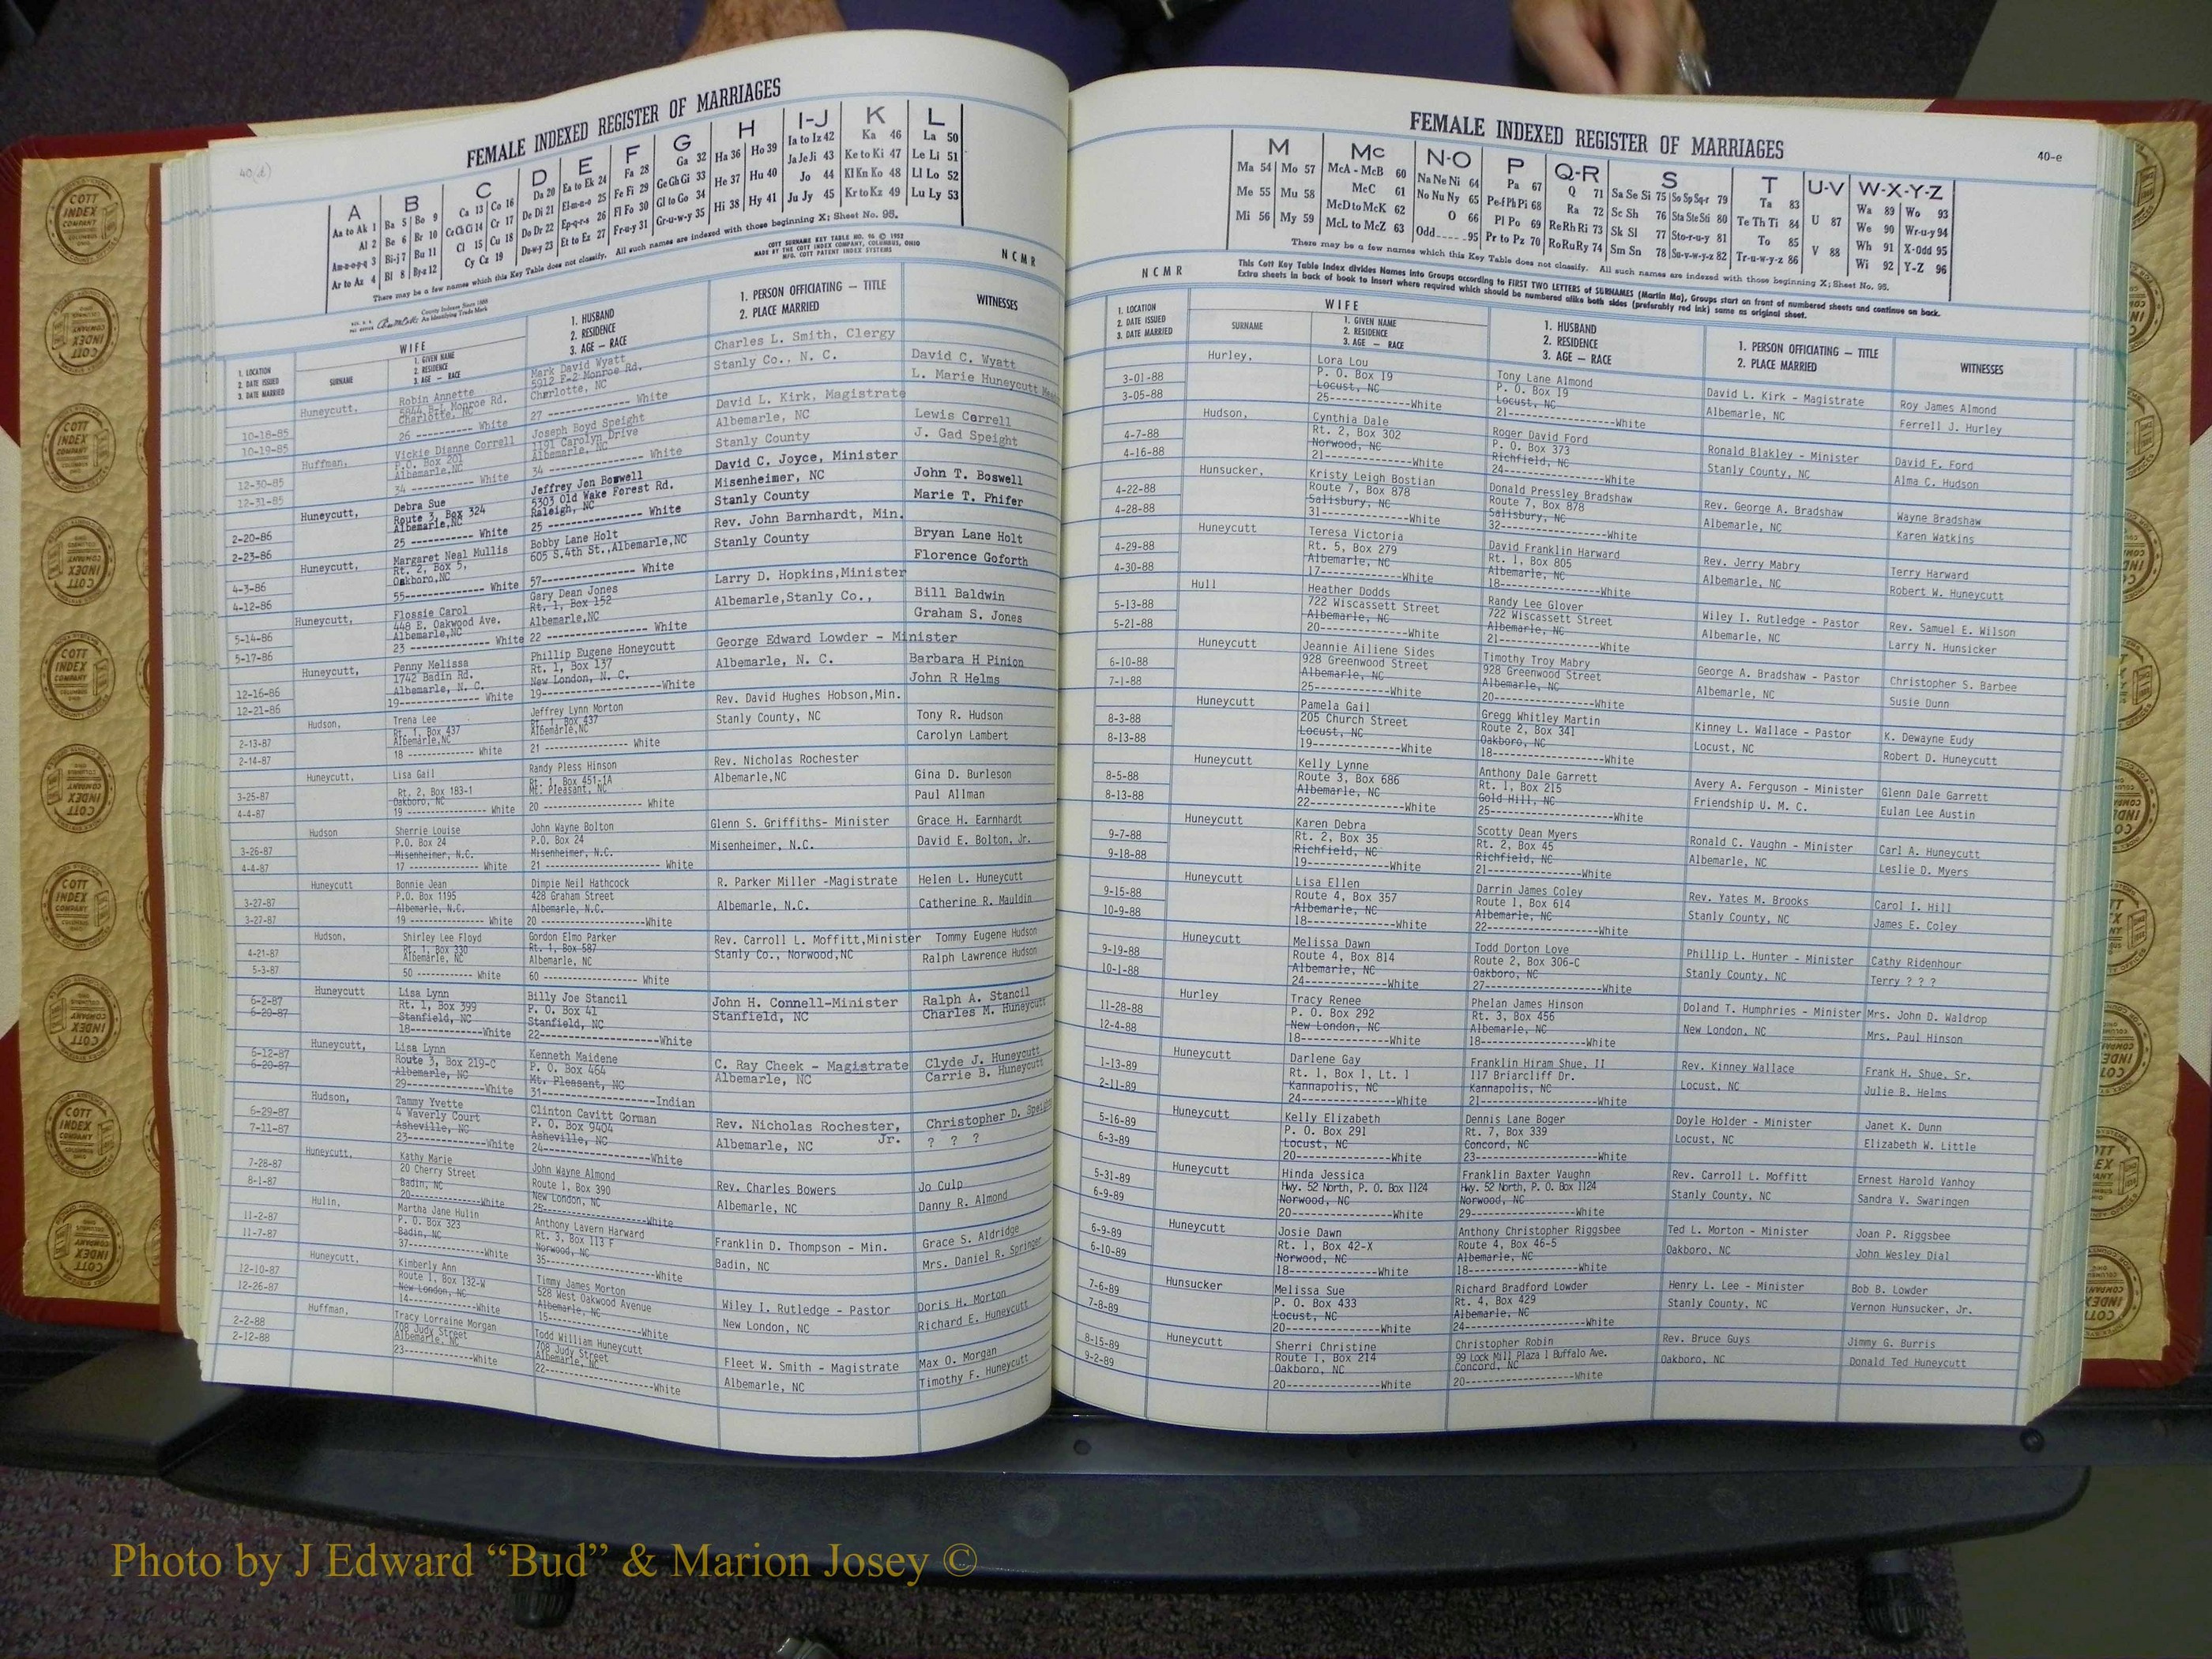 40(d)
FEMALE INDEXED REGISTER OF MARRIAGES
A B C D E F G H I-J K L
Aa to Ak 1 Ba 5 Bo 9 Ca 13 Co 16 Da 20 Ea to Ek 24 Fa 28 Ga 32 Ha 36 Ho 39 Ia to Iz 42 Ka 46 La 50
Al 2 Be 6 Br 10 Ce Ch Ci 14 Cr 17 De Di 21 El-m-n-o 25 Fe Fi 29 Ge Gh Gi 33 He 37 Hu 40 Ja Je Ji 43 Ke to Ki 47 Le Li 51
Am-n-o-p-q 3 Bi-j 7 Bu 11 Cl 15 Cu 18 Do Dr 22 Ep-q-r-s 26 Fl Fo 30 Gl to Go 34 Hi 38 Hy 41 Jo 44 Kl Kn Ko 48 Ll Lo 52
Ar to Az 4 Bl 8 By-z 12 Cy Cz 19 Du-w-y 23 Et to Ez 27 Fr-u-y 31 Gr-u-w-y 35 Ju Jy 45 Kr to Kz 49 Lu Ly 53
There may be a few names which this Key Table does not classify. All such names are indexed with those beginning X; Sheet No. 95.
County Indexes Since 1888
An Identifying Trade Mark
COTT SURNAME KEY TABLE NO. 96 © 1952
MADE BY THE COTT INDEX COMPANY, COLUMBUS, OHIO
MFG. COTT PATENT INDEX SYSTEMS
NCMR
1. LOCATION
2. DATE ISSUED
3. DATE MARRIED
WIFE
SURNAME
1. GIVEN NAME
2. RESIDENCE
3. AGE — RACE
1. HUSBAND
2. RESIDENCE
3. AGE — RACE
1. PERSON OFFICIATING — TITLE
2. PLACE MARRIED
WITNESSES
10-18-85
10-19-85
Huneycutt,
Robin Annette
Monroe Rd.
Charlotte, NC
26 ---------- White
Mark David Wyatt
5912 F-2 Monroe Rd.
Charlotte, NC
27 ---------- White
Charles L. Smith, Clergy
Stanly Co., N. C.
David C. Wyatt
L. Marie Huneycutt
12-30-85
12-31-85
Huffman,
Vickie Dianne Correll
P.O. Box 201
Albemarle,NC
34 ---------- White
Joseph Boyd Speight
1191 Carolyn Drive
Albemarle, NC
34 ---------- White
David L. Kirk, Magistrate
Albemarle, NC
Stanly County
Lewis Correll
J. Gad Speight
2-20-86
2-23-86
Huneycutt,
Debra Sue
Route 3, Box 324
Albemarle,NC
25 ---------- White
Jeffrey Jon Boswell
5303 Old Wake Forest Rd.
Raleigh, NC
25 ---------- White
David C. Joyce, Minister
Misenheimer, NC
Stanly County
John T. Boswell
Marie T. Phifer
4-3-86
4-12-86
Huneycutt,
Margaret Neal Mullis
Rt. 2, Box 5,
Oakboro,NC
55---------- White
Bobby Lane Holt
605 S.4th St.,Albemarle,NC
57---------- White
Rev. John Barnhardt, Min.
Stanly County
Bryan Lane Holt
Florence Goforth
5-14-86
5-17-86
Huneycutt,
Flossie Carol
448 E. Oakwood Ave.
Albemarle,NC
23 ---------- White
Gary Dean Jones
Rt. 1, Box 152
Albemarle,NC
22 ---------- White
Larry D. Hopkins,Minister
Albemarle,Stanly Co.,
Bill Baldwin
Graham S. Jones
12-16-86
12-21-86
Huneycutt,
Penny Melissa
1742 Badin Rd.
Albemarle, N. C.
19---------- White
Phillip Eugene Honeycutt
Rt. 1, Box 137
New London, N. C.
19----------White
George Edward Lowder - Minister
Albemarle, N. C.
Barbara H Pinion
John R Helms
2-13-87
2-14-87
Hudson,
Trena Lee
Rt. 1, Box 437
Albemarle,NC
18 ---------- White
Jeffrey Lynn Morton
Rt. 1, Box 437
Albemarle,NC
21 ---------- White
Rev. David Hughes Hobson,Min.
Stanly County, NC
Tony R. Hudson
Carolyn Lambert
3-25-87
4-4-87
Huneycutt,
Lisa Gail
Rt. 2, Box 183-1
Oakboro, NC
19 ---------- White
Randy Pless Hinson
Rt. 1, Box 451-1A
Mt. Pleasant, NC
20 ---------- White
Rev. Nicholas Rochester
Albemarle,NC
Gina D. Burleson
Paul Allman
3-26-87
4-4-87
Hudson
Sherrie Louise
P.O. Box 24
Misenheimer, N.C.
17 ---------- White
John Wayne Bolton
P.O. Box 24
Misenheimer, N.C.
21 ---------- White
Glenn S. Griffiths- Minister
Misenheimer, N.C.
Grace H. Earnhardt
David E. Bolton, Jr.
3-27-87
3-27-87
Huneycutt
Bonnie Jean
P.O. Box 1195
Albemarle, N.C.
19 ---------- White
Dimpie Neil Hathcock
428 Graham Street
Albemarle, N.C.
20 ----------White
R. Parker Miller -Magistrate
Albemarle, N.C.
Helen L. Huneycutt
Catherine R. Mauldin
4-21-87
5-3-87
Hudson,
Shirley Lee Floyd
Rt. 1, Box 330
Albemarle, NC
50 ---------- White
Gordon Elmo Parker
Rt. 1, Box 587
Albemarle, NC
60 ---------- White
Rev. Carroll L. Moffitt,Minister
Stanly Co., Norwood,NC
Tommy Eugene Hudson
Ralph Lawrence Hudson
6-2-87
6-20-87
Huneycutt
Lisa Lynn
Rt. 1, Box 399
Stanfield, NC
18----------White
Billy Joe Stancil
P. O. Box 41
Stanfield, NC
22----------White
John H. Connell-Minister
Stanfield, NC
Ralph A. Stancil
Charles M. Huneycutt
6-12-87
6-20-87
Huneycutt,
Lisa Lynn
Route 3, Box 219-C
Albemarle, NC
29----------White
Kenneth Maidene
P. O. Box 464
Mt. Pleasant, NC
31----------Indian
C. Ray Cheek - Magistrate
Albemarle, NC
Clyde J. Huneycutt
Carrie B. Huneycutt
6-29-87
7-11-87
Hudson,
Tammy Yvette
4 Waverly Court
Asheville, NC
23----------White
Clinton Cavitt Gorman
P. O. Box 9404
Asheville, NC
24----------White
Rev. Nicholas Rochester, Jr.
Albemarle, NC
Christopher D. Speight
? ? ?
7-28-87
8-1-87
Huneycutt,
Kathy Marie
20 Cherry Street
Badin, NC
20----------White
John Wayne Almond
Route 1, Box 390
New London, NC
25----------White
Rev. Charles Bowers
Albemarle, NC
Jo Culp
Danny R. Almond
11-2-87
11-7-87
Hulin,
Martha Jane Hulin
P. O. Box 323
Badin, NC
37----------White
Anthony Lavern Harward
Rt. 3, Box 113 F
Norwood, NC
35----------White
Franklin D. Thompson - Min.
Badin, NC
Grace S. Aldridge
Mrs. Daniel R. Springer
12-10-87
12-26-87
Huneycutt,
Kimberly Ann
Route 1, Box 132-W
New London, NC
14----------White
Timmy James Morton
528 West Oakwood Avenue
Albemarle, NC
15----------White
Wiley I. Rutledge - Pastor
New London, NC
Doris H. Morton
Richard E. Huneycutt
2-2-88
2-12-88
Huffman,
Tracy Lorraine Morgan
708 Judy Street
Albemarle, NC
23----------White
Todd William Huneycutt
708 Judy Street
Albemarle, NC
22----------White
Fleet W. Smith - Magistrate
Albemarle, NC
Max O. Morgan
Timothy F. Huneycutt
FEMALE INDEXED REGISTER OF MARRIAGES
40-e
M Mc N-O P Q-R S T U-V W-X-Y-Z
Ma 54 Mo 57 McA - McB 60 Na Ne Ni 64 Pa 67 Q 71 Sa Se Si 75 So Sp Sq-r 79 Ta 83 U 87 Wa 89 Wo 93
Me 55 Mu 58 McC 61 No Nu Ny 65 Pe-f Ph Pi 68 Ra 72 Sc Sh 76 Sta Ste Sti 80 Te Th Ti 84 V 88 We 90 Wr-u-y 94
Mi 56 My 59 McD to McK 62 O 66 Pl Po 69 Re Rh Ri 73 Sk Sl 77 Sto-r-u-y 81 To 85 Wh 91 X-Odd 95
McL to McZ 63 Odd 95 Pr to Pz 70 Ro Ru Ry 74 Sm Sn 78 Su-v-w-y-z 82 Tr-u-w-y-z 86 Wi 92 Y-Z 96
There may be a few names which this Key Table does not classify. All such names are indexed with those beginning X; Sheet No. 95.
NCMR
This Cott Key Table Index divides Names into Groups according to FIRST TWO LETTERS of SURNAMES (Martin Ma), Groups start on front of numbered sheets and continue on back.
Extra sheets in back of book to insert where required which should be numbered alike both sides (preferably red ink) same as original sheet.
1. LOCATION
2. DATE ISSUED
3. DATE MARRIED
WIFE
SURNAME
1. GIVEN NAME
2. RESIDENCE
3. AGE — RACE
1. HUSBAND
2. RESIDENCE
3. AGE — RACE
1. PERSON OFFICIATING — TITLE
2. PLACE MARRIED
WITNESSES
3-01-88
3-05-88
Hurley,
Lora Lou
P. O. Box 19
Locust, NC
25----------White
Tony Lane Almond
P. O. Box 19
Locust, NC
21----------White
David L. Kirk - Magistrate
Albemarle, NC
Roy James Almond
Ferrell J. Hurley
4-7-88
4-16-88
Hudson,
Cynthia Dale
Rt. 2, Box 302
Norwood, NC
21----------White
Roger David Ford
P. O. Box 373
Richfield, NC
24----------White
Ronald Blakley - Minister
Stanly County, NC
David F. Ford
Alma C. Hudson
4-22-88
4-28-88
Hunsucker,
Kristy Leigh Bostian
Route 7, Box 878
Salisbury, NC
31----------White
Donald Pressley Bradshaw
Route 7, Box 878
Salisbury, NC
32----------White
Rev. George A. Bradshaw
Albemarle, NC
Wayne Bradshaw
Karen Watkins
4-29-88
4-30-88
Huneycutt
Teresa Victoria
Rt. 5, Box 279
Albemarle, NC
17----------White
David Franklin Harward
Rt. 1, Box 805
Albemarle, NC
18----------White
Rev. Jerry Mabry
Albemarle, NC
Terry Harward
Robert W. Huneycutt
5-13-88
5-21-88
Hull
Heather Dodds
722 Wiscassett Street
Albemarle, NC
20----------White
Randy Lee Glover
722 Wiscassett Street
Albemarle, NC
21----------White
Wiley I. Rutledge - Pastor
Albemarle, NC
Rev. Samuel E. Wilson
Larry N. Hunsicker
6-10-88
7-1-88
Huneycutt
Jeannie Ailiene Sides
928 Greenwood Street
Albemarle, NC
25----------White
Timothy Troy Mabry
928 Greenwood Street
Albemarle, NC
20----------White
George A. Bradshaw - Pastor
Albemarle, NC
Christopher S. Barbee
Susie Dunn
8-3-88
8-13-88
Huneycutt
Pamela Gail
205 Church Street
Locust, NC
19----------White
Gregg Whitley Martin
Route 2, Box 341
Oakboro, NC
18----------White
Kinney L. Wallace - Pastor
Locust, NC
K. Dewayne Eudy
Robert D. Huneycutt
8-5-88
8-13-88
Huneycutt
Kelly Lynne
Route 3, Box 686
Albemarle, NC
22----------White
Anthony Dale Garrett
Rt. 1, Box 215
Gold Hill, NC
25----------White
Avery A. Ferguson - Minister
Friendship U. M. C.
Glenn Dale Garrett
Eulan Lee Austin
9-7-88
9-18-88
Huneycutt
Karen Debra
Rt. 2, Box 35
Richfield, NC
19----------White
Scotty Dean Myers
Rt. 2, Box 45
Richfield, NC
21----------White
Ronald C. Vaughn - Minister
Albemarle, NC
Carl A. Huneycutt
Leslie D. Myers
9-15-88
10-9-88
Huneycutt
Lisa Ellen
Route 4, Box 357
Albemarle, NC
18----------White
Darrin James Coley
Route 1, Box 614
Albemarle, NC
22----------White
Rev. Yates M. Brooks
Stanly County, NC
Carol I. Hill
James E. Coley
9-19-88
10-1-88
Huneycutt
Melissa Dawn
Route 4, Box 814
Albemarle, NC
24----------White
Todd Dorton Love
Route 2, Box 306-C
Oakboro, NC
27----------White
Phillip L. Hunter - Minister
Stanly County, NC
Cathy Ridenhour
Terry ? ? ?
11-28-88
12-4-88
Hurley
Tracy Renee
P. O. Box 292
New London, NC
18----------White
Phelan James Hinson
Rt. 3, Box 456
Albemarle, NC
18----------White
Doland T. Humphries - Minister
New London, NC
Mrs. John D. Waldrop
Mrs. Paul Hinson
1-13-89
2-11-89
Huneycutt
Darlene Gay
Rt. 1, Box 1, Lt. 1
Kannapolis, NC
24----------White
Franklin Hiram Shue, II
117 Briarcliff Dr.
Kannapolis, NC
21----------White
Rev. Kinney Wallace
Locust, NC
Frank H. Shue, Sr.
Julie B. Helms
5-16-89
6-3-89
Huneycutt
Kelly Elizabeth
P. O. Box 291
Locust, NC
20----------White
Dennis Lane Boger
Rt. 7, Box 339
Concord, NC
23----------White
Doyle Holder - Minister
Locust, NC
Janet K. Dunn
Elizabeth W. Little
5-31-89
6-9-89
Huneycutt
Hinda Jessica
Hwy. 52 North, P. O. Box 1124
Norwood, NC
20----------White
Franklin Baxter Vaughn
Hwy. 52 North, P. O. Box 1124
Norwood, NC
29----------White
Rev. Carroll L. Moffitt
Stanly County, NC
Ernest Harold Vanhoy
Sandra V. Swaringen
6-9-89
6-10-89
Huneycutt
Josie Dawn
Rt. 1, Box 42-X
Norwood, NC
18----------White
Anthony Christopher Riggsbee
Route 4, Box 46-5
Albemarle, NC
18----------White
Ted L. Morton - Minister
Oakboro, NC
Joan P. Riggsbee
John Wesley Dial
7-6-89
7-8-89
Hunsucker
Melissa Sue
P. O. Box 433
Locust, NC
20----------White
Richard Bradford Lowder
Rt. 4, Box 429
Albemarle, NC
24----------White
Henry L. Lee - Minister
Stanly County, NC
Bob B. Lowder
Vernon Hunsucker, Jr.
8-15-89
9-2-89
Huneycutt
Sherri Christine
Route 1, Box 214
Oakboro, NC
20----------White
Christopher Robin
99 Lock Mill Plaza 1 Buffalo Ave.
Concord, NC
20----------White
Rev. Bruce Guys
Oakboro, NC
Jimmy G. Burris
Donald Ted Huneycutt
COTT INDEX COMPANY COLUMBUS OHIO
Photo by J Edward “Bud” & Marion Josey ©